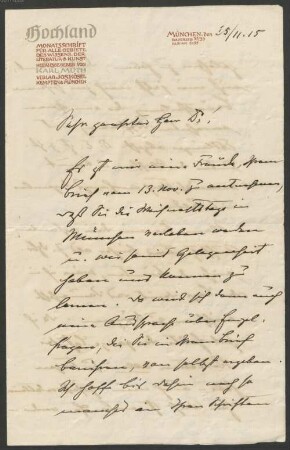 Hochland
MONATSSCHRIFT
FÜR ALLE GEBIETE
DES WISSENS, DER
LITERATUR & KUNST
HERAUSGEGEBEN VON
KARL MUTH
VERLAG JOS. KÖSEL
KEMPTEN & MÜNCHEN
MÜNCHEN, den 25/11.15
Sehr geehrter Herr Dr.!
Es ist mir eine Freude, Ihrem
Brief vom 13. Nov. zu entnehmen,
daß Sie die Weihnachtstage in
München verleben werden
u. wir somit Gelegenheit
haben uns kennen zu
lernen. Da wird sich dann auch
eine Aussprache über
Fragen, die Sie in Ihrem Brief
berühren, von selbst ergeben.
Ich hoffe bis dahin noch so
manches an Ihren Schriften